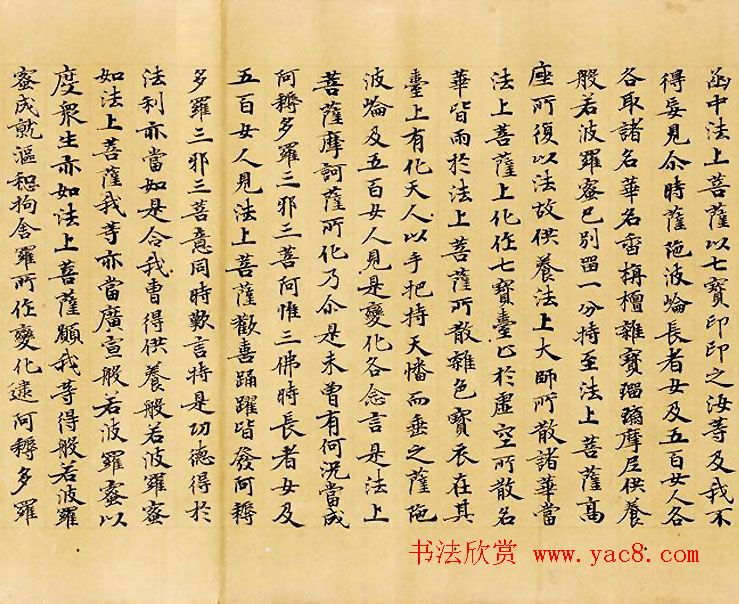 函中法上菩薩以七寶印印之汝等及我不
得妄見尒時薩陁波崘長者女及五百女人各
各取諸名華名香栴檀雜寶瑠璃摩尼供養
般若波羅蜜已別留一分持至法上菩薩高
座所復以法故供養法上大師所散諸華當
法上菩薩上化作七寶臺止於虛空所散名
華皆雨於法上菩薩所散雜色寶衣在其
臺上有化天人以手把持天幡而垂之薩陁
波崘及五百女人見是變化各念言是法上
菩薩摩訶薩所化乃尒是未曾有何況當成
阿耨多羅三邪三菩阿惟三佛時長者女及
五百女人見法上菩薩歡喜踊躍皆發阿耨
多羅三邪三菩意同時歎言持是功德得於
法利亦當如是令我曹得供養般若波羅蜜
如法上菩薩我等亦當廣宣般若波羅蜜以
度衆生亦如法上菩薩願我等得般若波羅
蜜成就漚惒拘舍羅所作變化逮阿耨多羅
书法欣赏 www.yac8.com